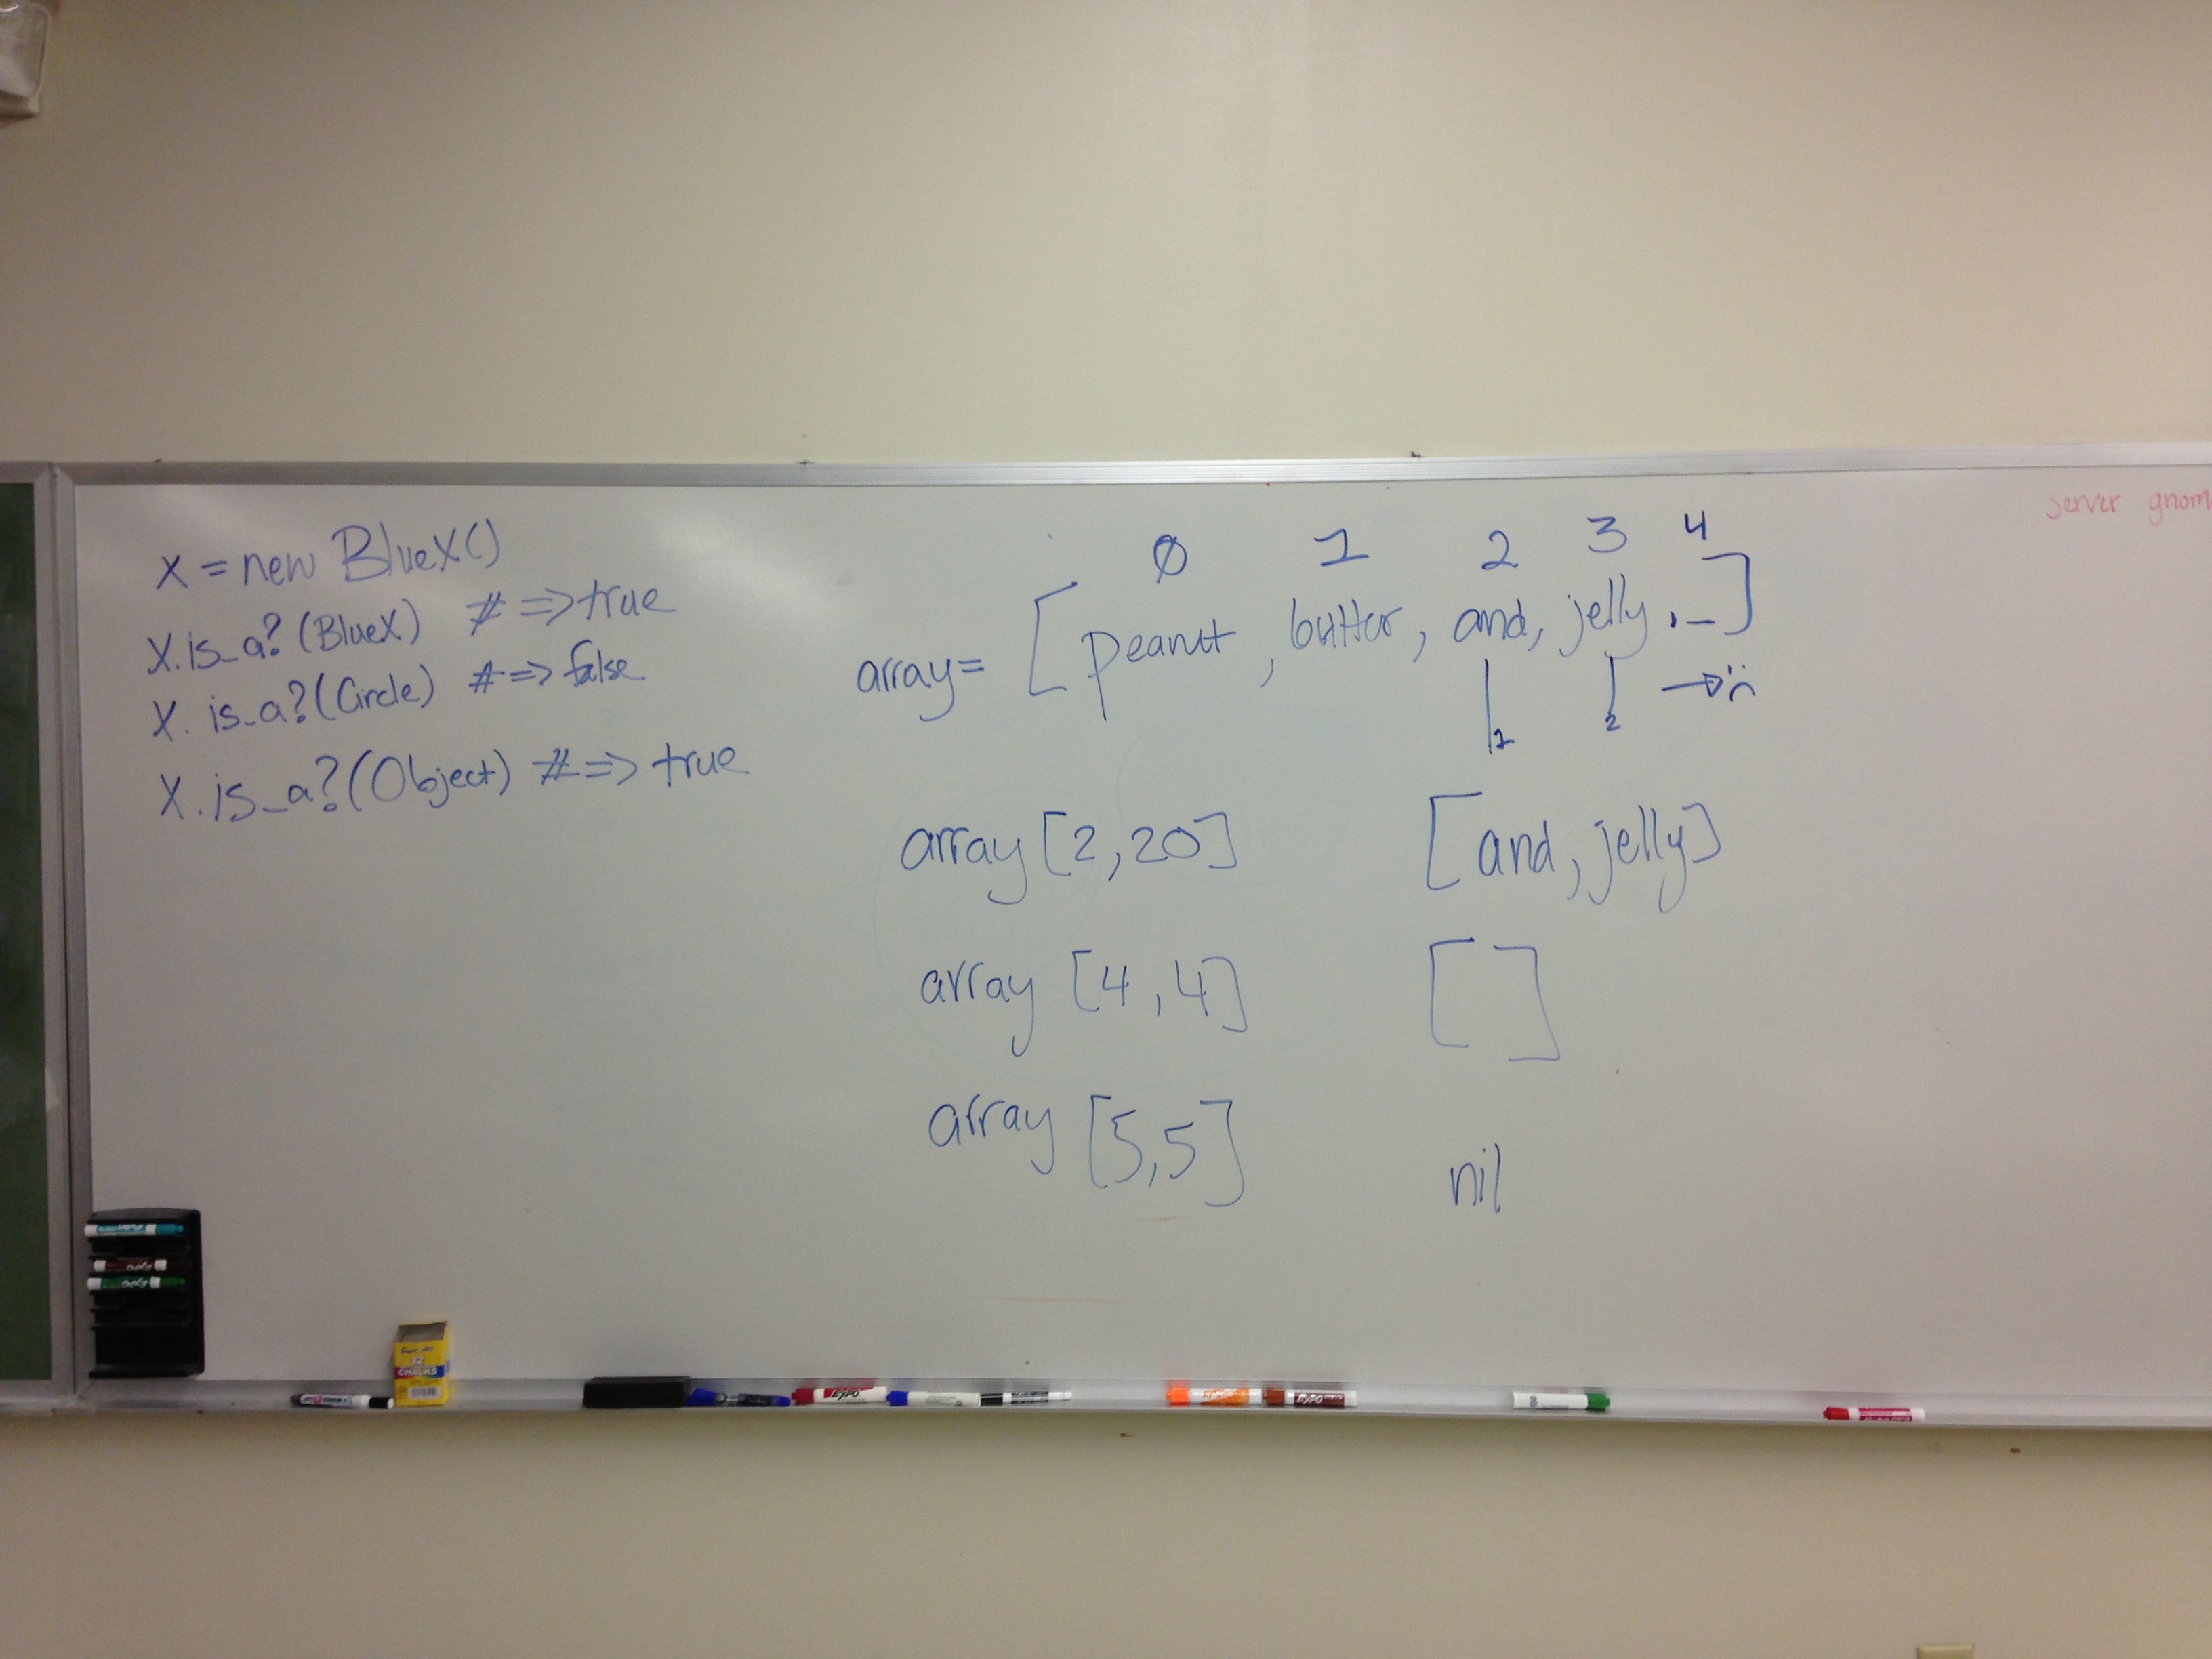 X = new BlueX()
X.is_a? (BlueX) # => true
X. is_a? (Circle) # => false
X. is_a? (Object) # => true
0 1 2 3 4
array = [peanut, butter, and, jelly, _]
1 2
array [2,20] [and, jelly]
array [4,4] [ ]
array [5,5] nil
server gnom
12
CHALKS
EXPO
EXPO